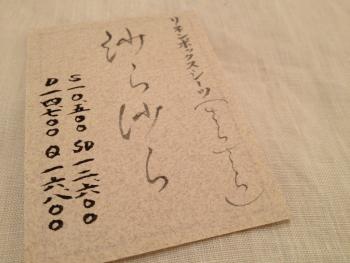 リネンボックスシーツ(さらさら)
沙ら沙ら
S一〇.五〇〇 SD一二.六〇〇
D一四.七〇〇 Q一六.八〇〇